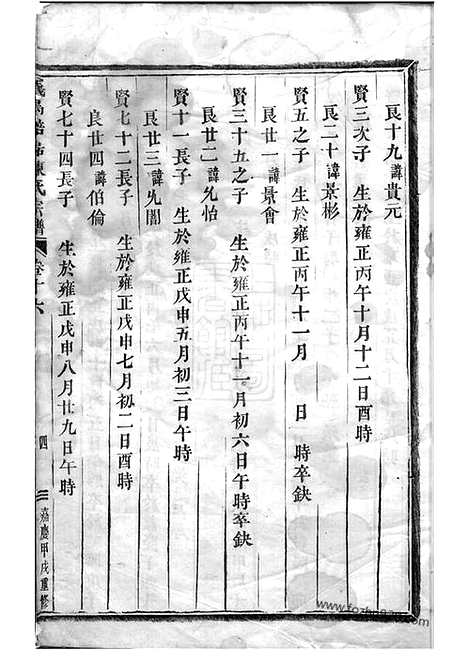 艮十九諱貴元
賢三次子 生於雍正丙午十月十二日酉時
艮二十諱景彬
賢五之子 生於雍正丙午十一月 日 時卒缺
艮廿一諱景會
賢三十五之子 生於雍正丙午十一月初六日午時卒缺
艮廿二諱允怡
賢十一長子 生於雍正戊申五月初三日午時
艮廿三諱允闇
賢七十二長子 生於雍正戊申七月初二日酉時
艮廿四諱伯倫
賢七十四長子 生於雍正戊申八月廿九日午時
陳氏宗譜 卷十六 四 嘉慶甲戌重修